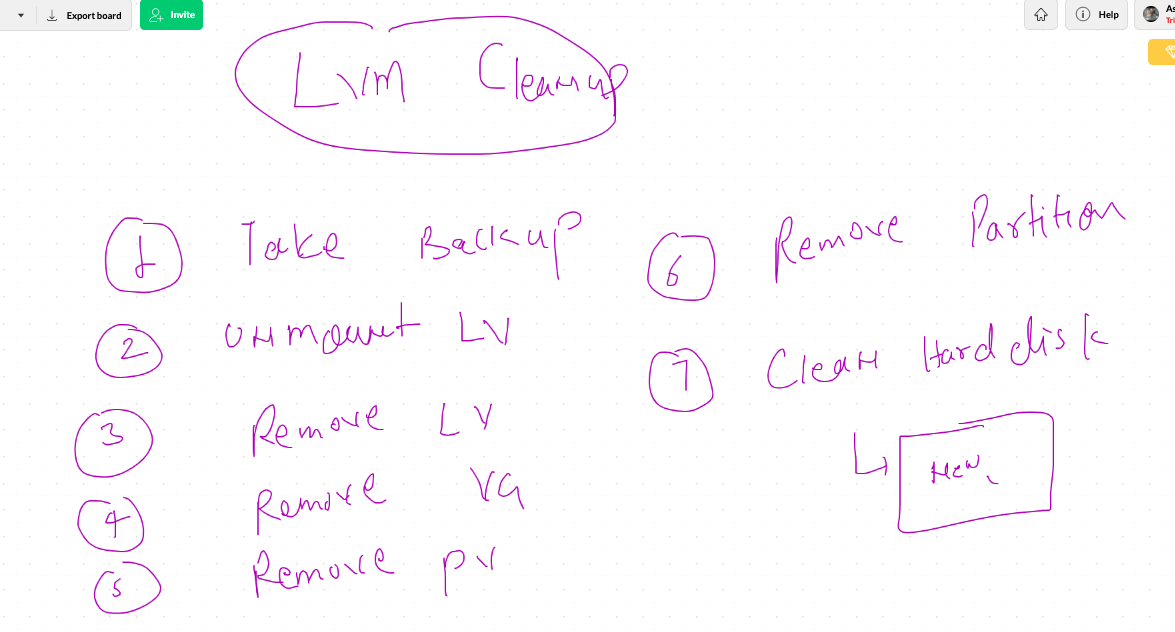 Export board
Invite
Help
As
Tri
LVM Cleanup
1 Take Backup
2 unmount LV
3 Remove LV
4 Remove VG
5 Remove PV
6 Remove Partition
7 Clean Hard disk
New